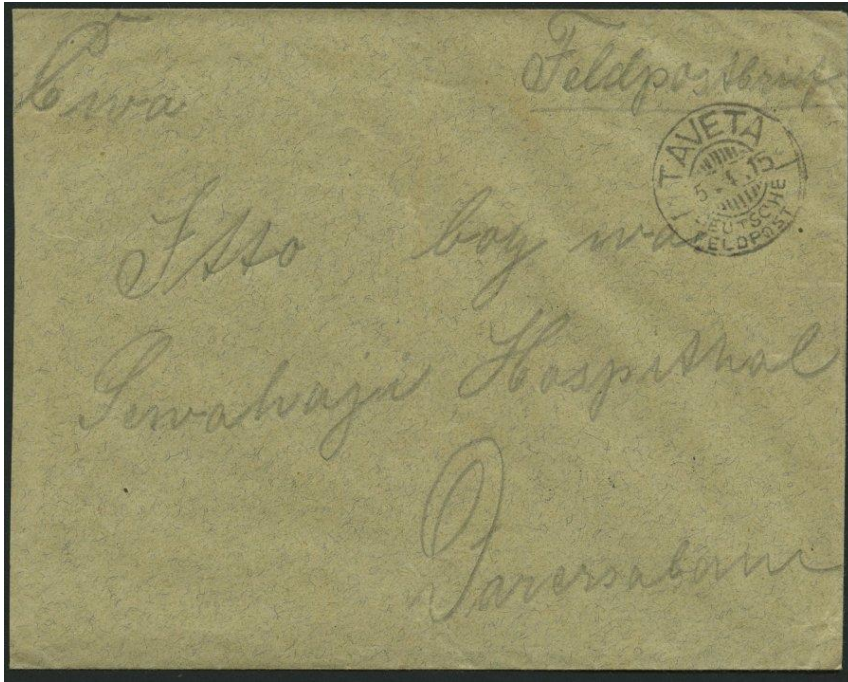 Feldpostbrief
Kwa
TAVETA
5.4.15
DEUTSCHE
FELDPOST
boy wa
Sewahaji Hospithal
Daressalam